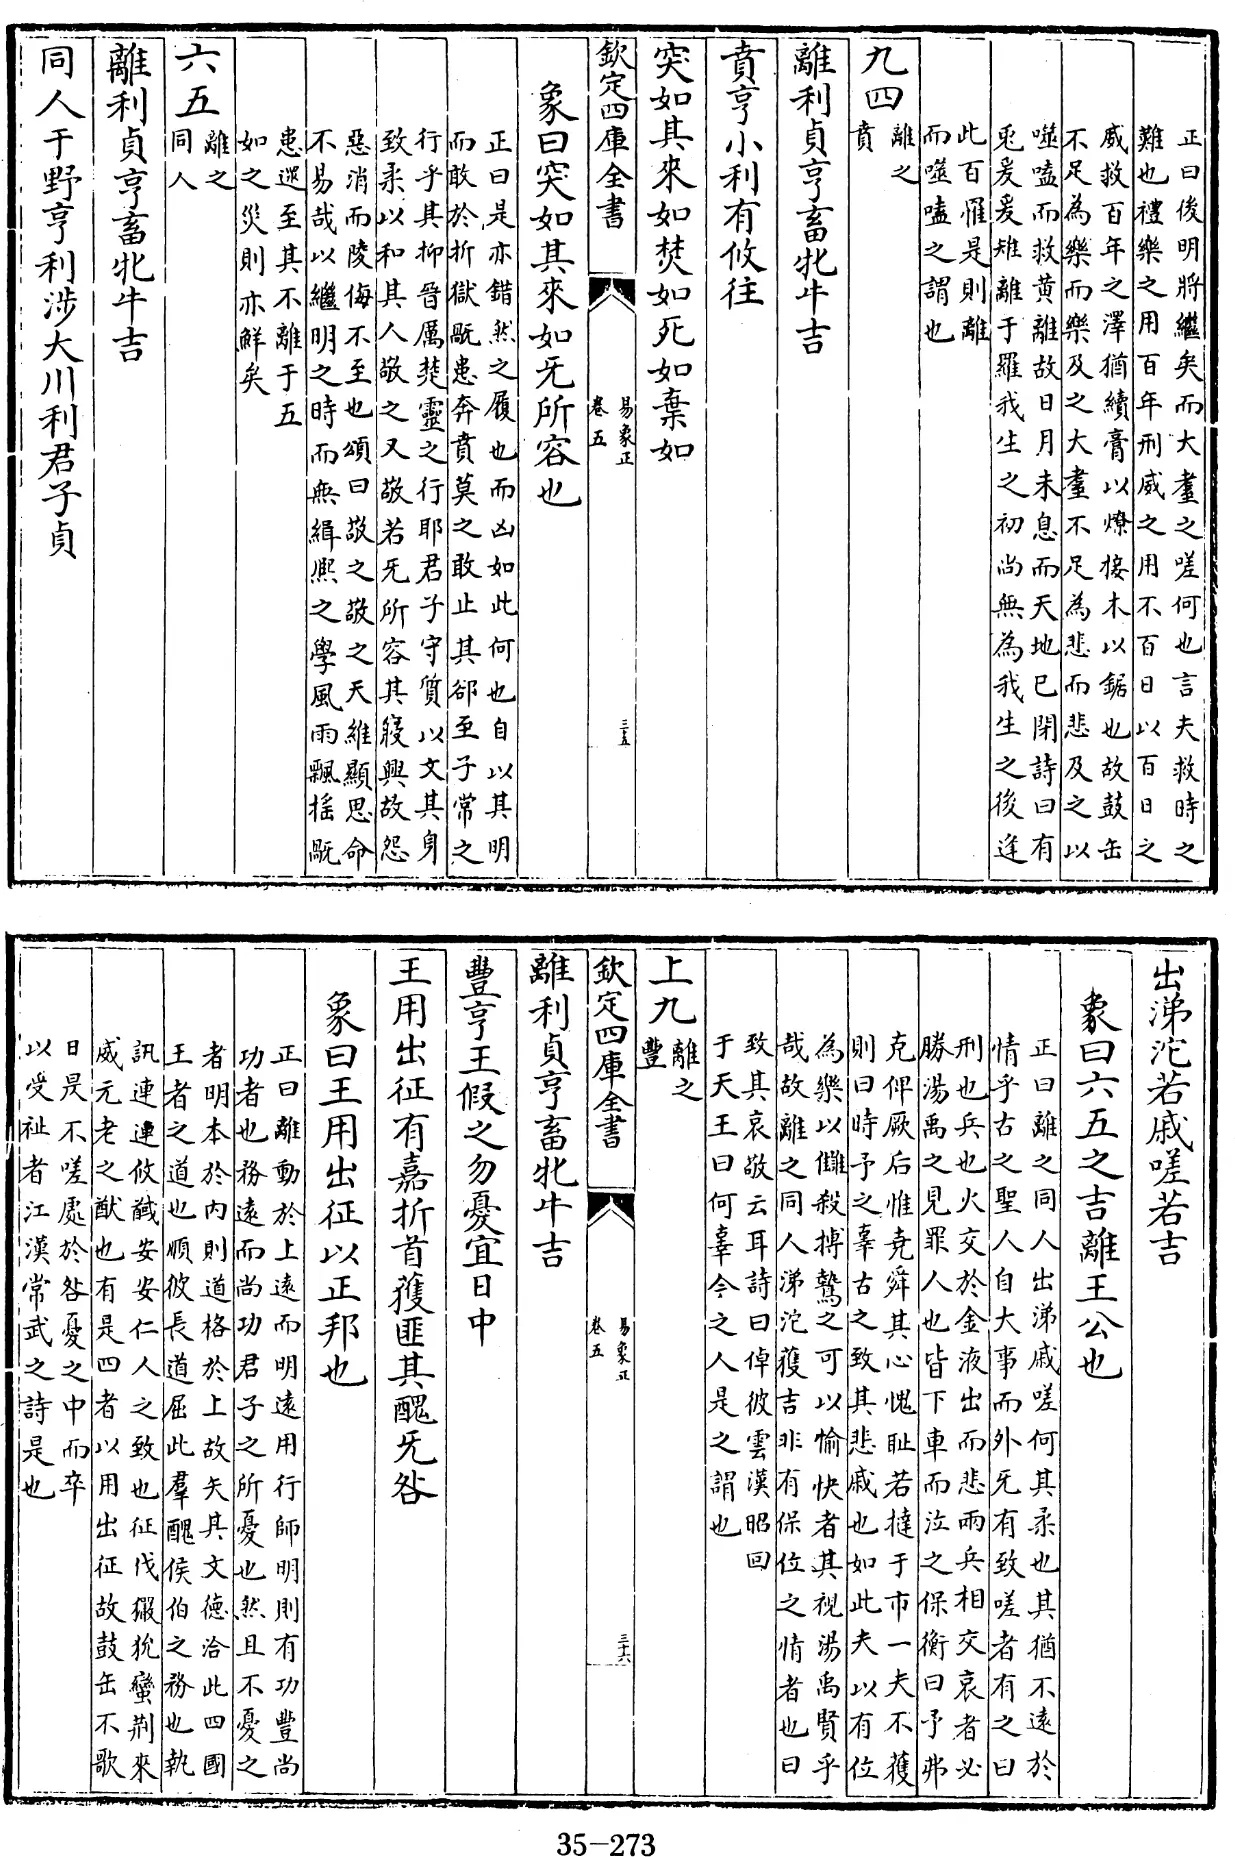 正曰後明將繼矣而大耋之嗟何也言夫救時之
難也禮樂之用百年刑威之用不百日以百日之
威救百年之澤猶續膏以燎接木以鋸也故鼓缶
不足為樂而樂及之大耋不足為悲而悲及之以
噬嗑而救黄離故日月未息而天地已閉詩曰有
兎爰爰雉離于羅我生之初尚無為我生之後逢
此百罹是則離
而噬嗑之謂也
九四離之
賁
離利貞亨畜牝牛吉
賁亨小利有攸往
突如其來如焚如死如棄如
欽定四庫全書
易象正
卷五
三十五
象曰突如其來如旡所容也
正曰是亦錯然之履也而凶如此何也自以其明
而敢於折獄旣患奔賁莫之敢止其郤至子常之
行乎其抑晉厲楚靈之行耶君子守質以文其身
致柔以和其人敬之又敬若旡所容其寢興故怨
惡消而陵侮不至也頌曰敬之敬之天維顯思命
不易哉以繼明之時而無緝熈之學風雨飄摇旣
患遝至其不離于五
如之災則亦鮮矣
六五離之
同人
離利貞亨畜牝牛吉
同人于野亨利涉大川利君子貞
出涕沱若戚嗟若吉
象曰六五之吉離王公也
正曰離之同人出涕戚嗟何其柔也其猶不遠於
情乎古之聖人自大事而外旡有致嗟者有之曰
刑也兵也火交於金液出而悲兩兵相交哀者必
勝湯禹之見罪人也皆下車而泣之保衡曰予弗
克俾厥后惟堯舜其心愧耻若撻于市一夫不獲
則曰時予之辜古之致其悲戚也如此夫以有位
為樂以讎殺搏鷙之可以愉快者其視湯禹賢乎
哉故離之同人涕沱獲吉非有保位之情者也曰
致其哀敬云耳詩曰倬彼雲漢昭回
于天王曰何辜今之人是之謂也
上九離之
豐
欽定四庫全書
易象正
卷五
三十六
離利貞亨畜牝牛吉
豐亨王假之勿憂宜日中
王用出征有嘉折首獲匪其醜旡咎
象曰王用出征以正邦也
正曰離動於上遠而明遠用行師明則有功豐尚
功者也務遠而尚功君子之所憂也然且不憂之
者明本於内則道格於上故矢其文德洽此四國
王者之道也順彼長道屈此羣醜侯伯之務也執
訊連連攸馘安安仁人之致也征伐玁狁蠻荆來
威元老之猷也有是四者以用出征故鼓缶不歌
日昃不嗟處於咎憂之中而卒
以受祉者江漢常武之詩是也
35-273